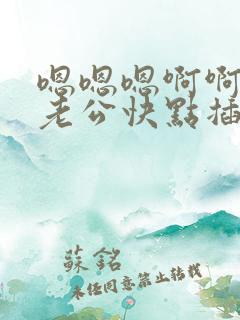 嗯嗯嗯啊啊
老公快點插
蘇銘
未经同意禁止转载